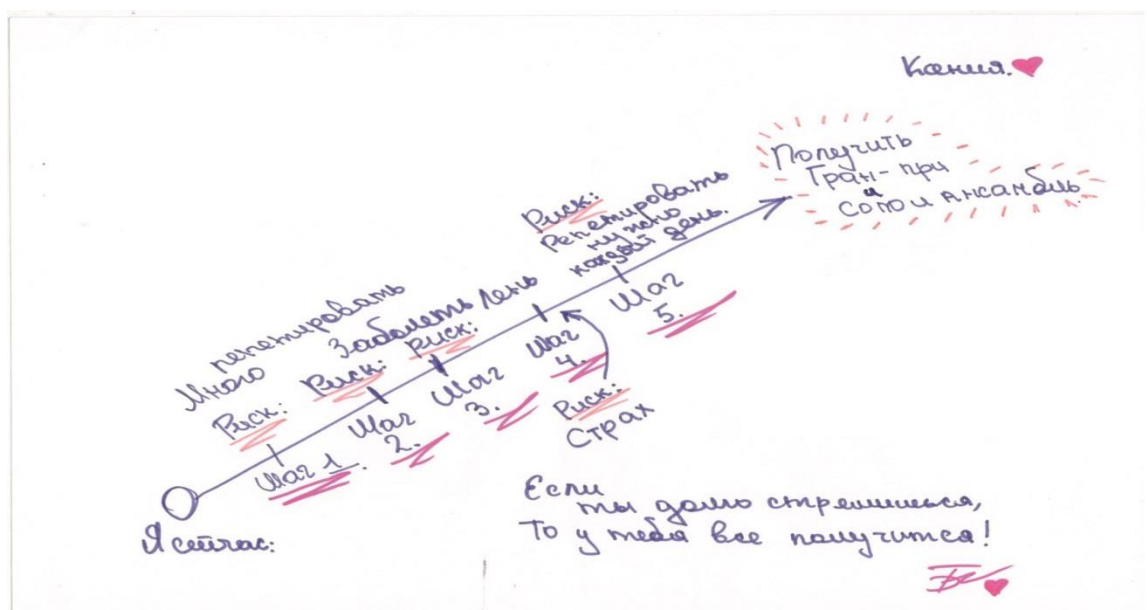 Ксения.
Получить
Гран-при
и
соло и Ансамбль
Риск:
Репетировать
нужно
каждый день.
Много репетировать
Риск:
Заболеть
Риск:
Лень
Риск:
Шаг 1.
Шаг
2.
Шаг
3.
Шаг
4.
Шаг
5.
Риск:
Страх
Я сейчас:
Если
ты долго стремишься,
То у тебя все получится!